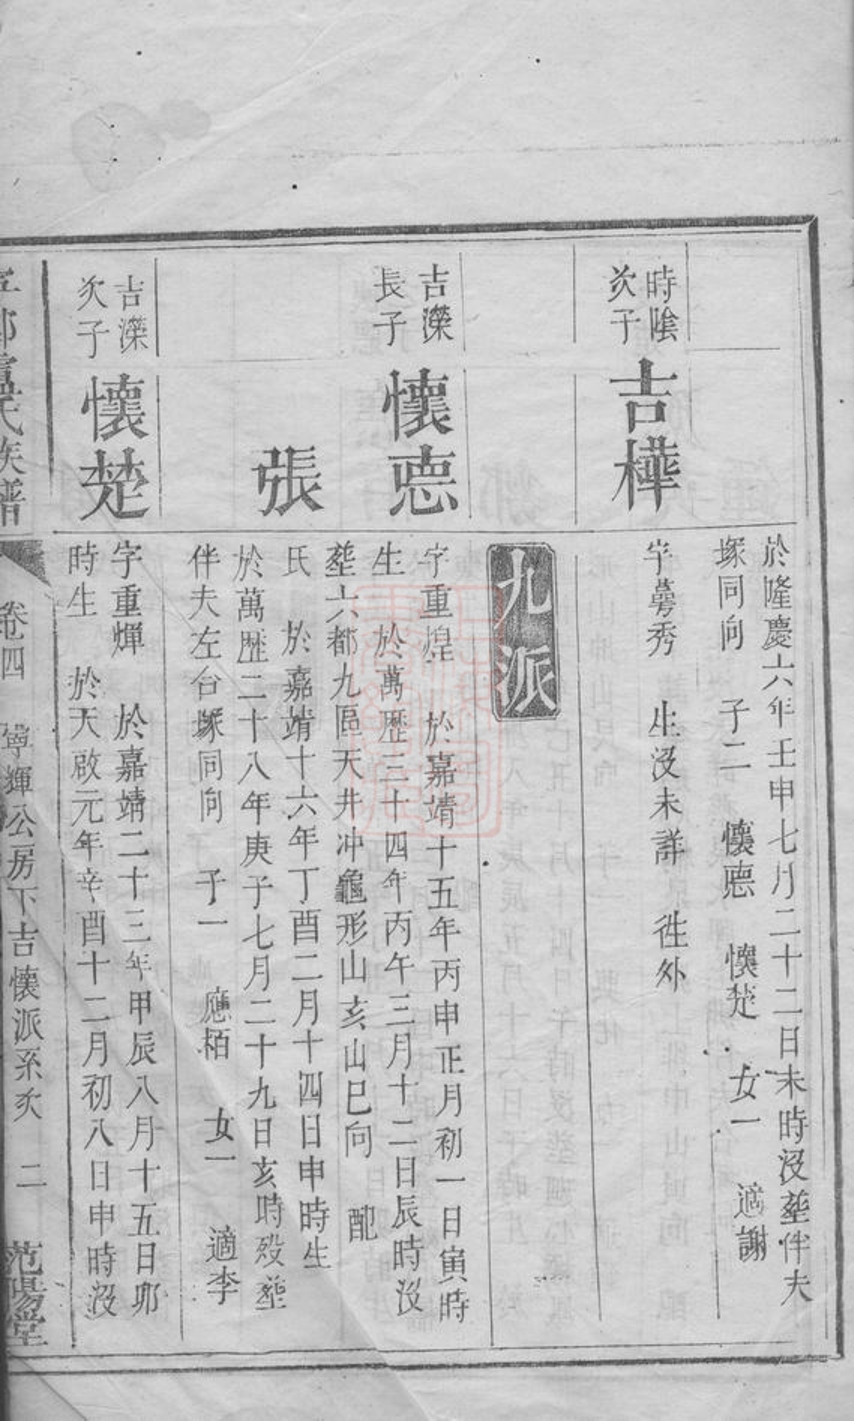 於隆慶六年壬申七月二十二日未時沒塟伴夫
塚同向 子二 懷悳 懷楚 女一 適謝
時陰
次子
吉樺
字蕚秀 生沒未詳 徃外
九派
吉濚
長子
懷悳
字重煌 於嘉靖十五年丙申正月初一日寅時
生 於萬歷三十四年丙午三月十二日辰時沒
塟六都九區天井冲龜形山亥山巳向 配
張
氏 於嘉靖十六年丁酉二月十四日申時生
於萬歷二十八年庚子七月二十九日亥時歿塟
伴夫左台塚同向 子一 應栢 女一 適李
吉濚
次子
懷楚
字重燀 於嘉靖二十三年甲辰八月十五日卯
時生 於天啟元年辛酉十二月初八日申時沒
盧氏族譜 卷四 寧輝公房下吉懷派系次 二 范陽堂